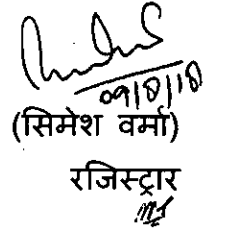 09/8/18
(सिमेश वर्मा)
रजिस्ट्रार